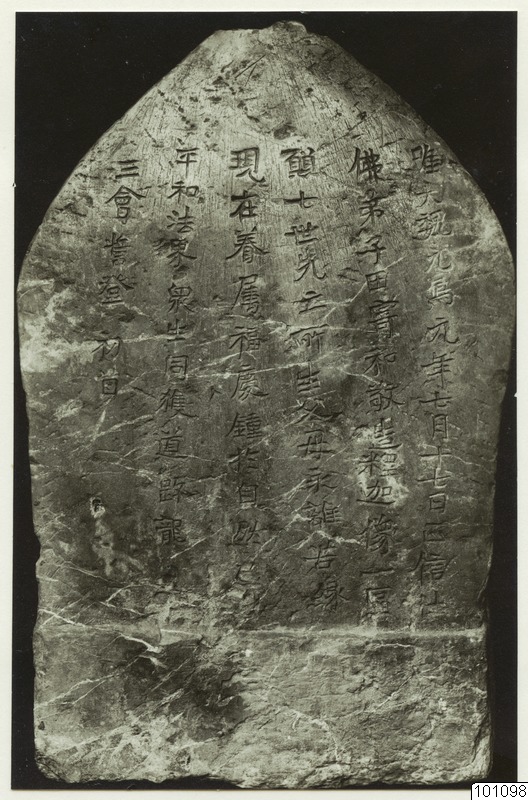 唯大魏元馬元年七月十七日正信士
佛弟子田壽和敬造釋迦像一區
願七世先亡所生父母永離苦緣
現在眷属福慶鍾於自
平和法界衆生同獲道龍
三會誓登初首
101098